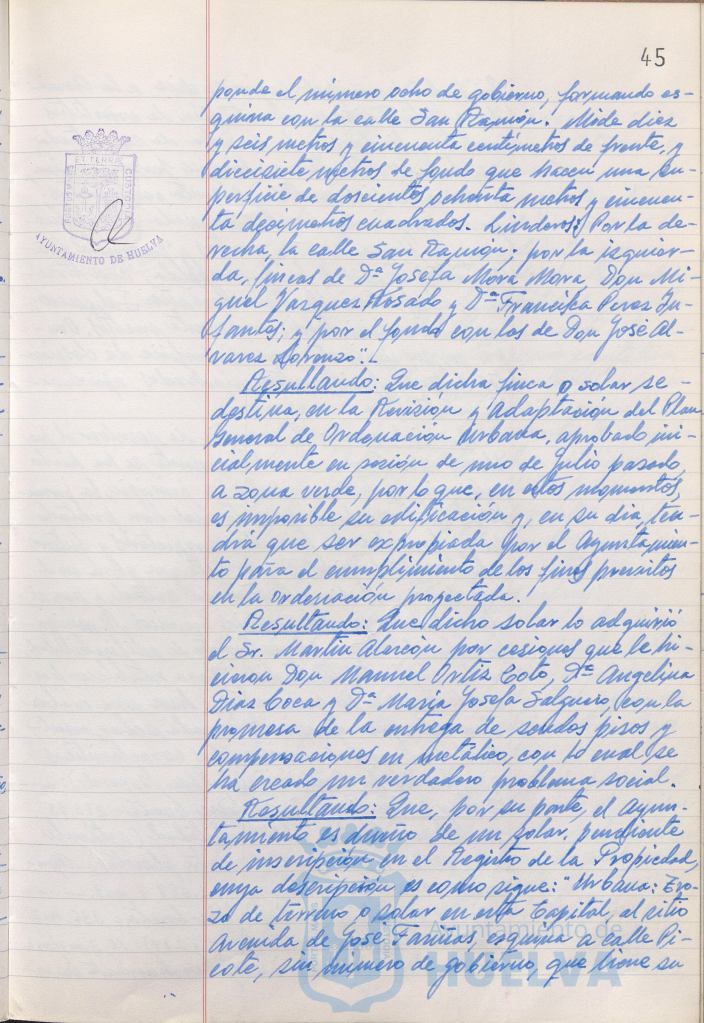 45
ponde el número ocho de gobierno, formando es-
quina con la calle San Ramón. Mide diez
y seis metros y cincuenta centímetros de frente, y
diecisiete metros de fondo que hacen una su-
perficie de doscientos ochenta metros y cincuen-
ta decímetros cuadrados. Linderos: Por la de-
recha, la calle San Ramón; por la izquier-
da, fincas de Dª Josefa Mora Mora, Don Mi-
guel Vazquez Rosado y Dª Francisca Perez In-
fantes; y por el fondo con los de Don José Al-
varez Lorenzo".-
Resultando: Que dicha finca o solar se
destina, en la Revisión y Adaptación del Plan
General de Ordenación Urbana, aprobado ini-
cialmente en sesión de uno de Julio pasado,
a zona verde, por lo que, en estos momentos,
es imposible su edificación y, en su dia, ten-
drá que ser expropiada por el Ayuntamien-
to para el cumplimiento de los fines previstos
en la ordenación proyectada.
Resultando: Que dicho solar lo adquirió
el Sr. Martin Alarcón por cesiones que le hi-
cieron Don Manuel Ortiz Coto, Dª Angelina
Diaz Coca y Dª María Josefa Salguero, con la
promesa de la entrega de sendos pisos y
compensaciones en metálico, con lo cual se
ha creado un verdadero problema social.
Resultando: Que, por su parte, el Ayun-
tamiento es dueño de un solar, pendiente
de inscripción en el Registro de la Propiedad,
cuya descripción es como sigue: "Urbana: Tro-
zo de terreno o solar en esta Capital, al sitio
Avenida de José Fariñas, esquina a calle Pi-
cote, sin número de gobierno, que tiene su
ET TERRA
CUSTODIA
AYUNTAMIENTO DE HUELVA
Ayuntamiento de
HUELVA